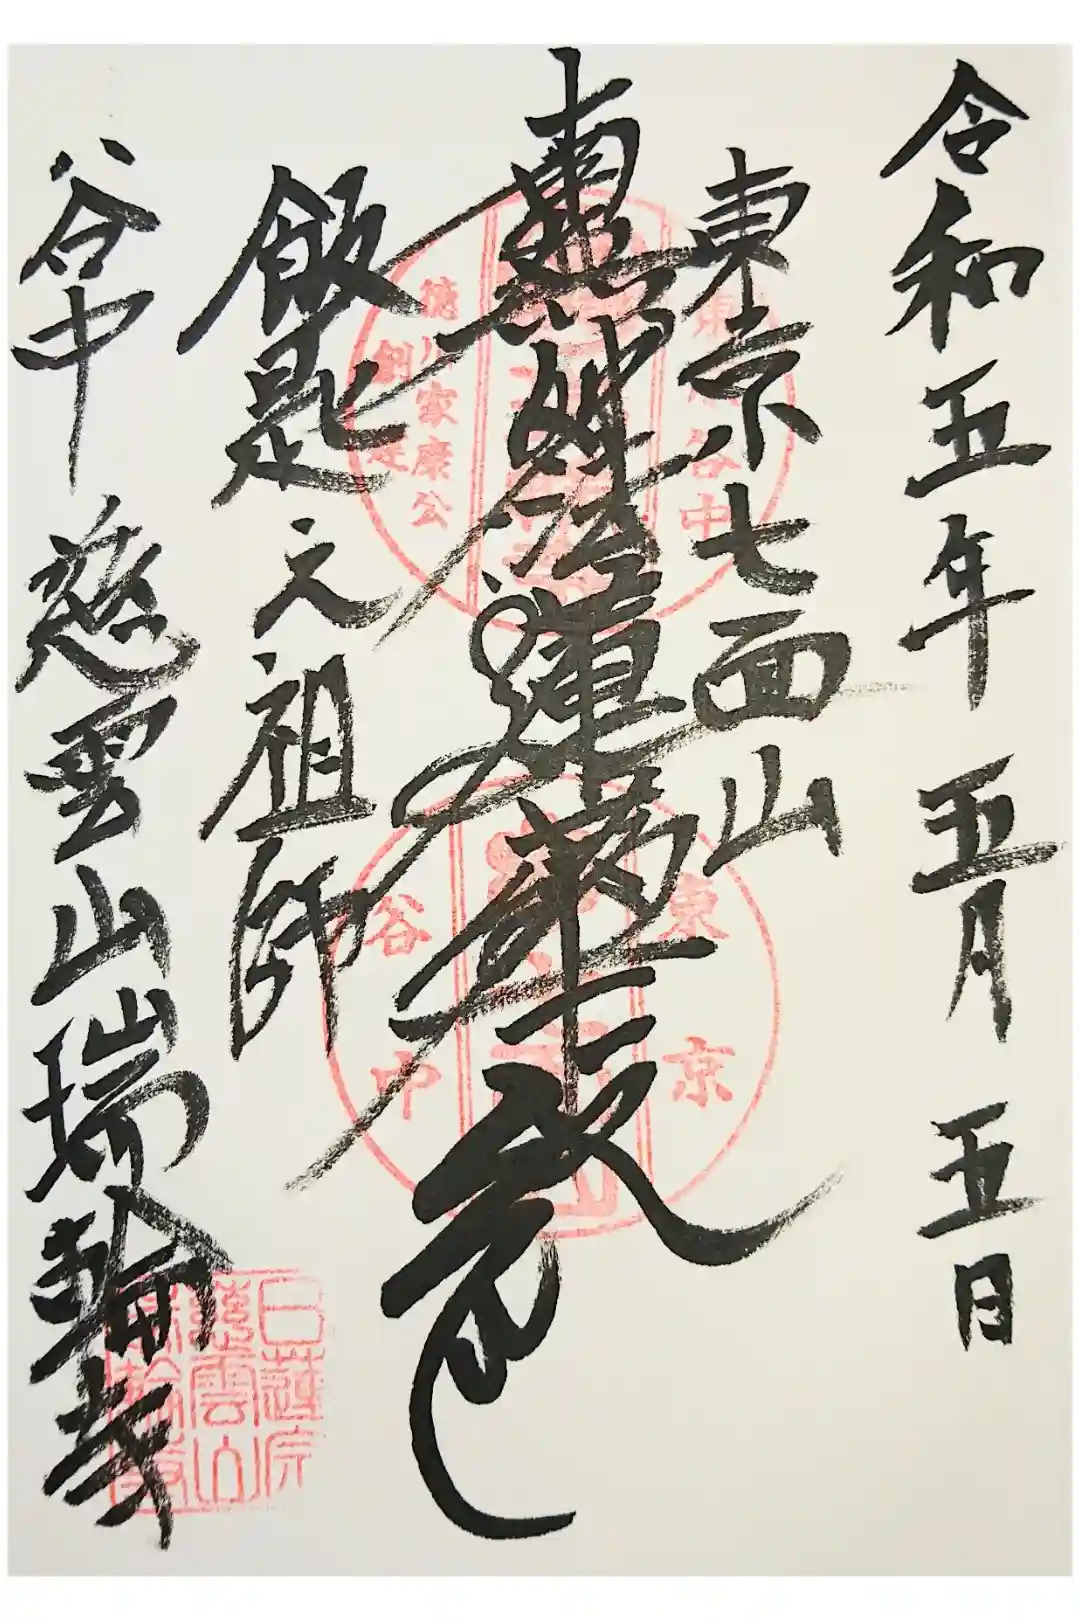 令和五年 五月 五日
東京七面山
南無妙法蓮華経
飯匙之祖師
谷中 慈雲山瑞輪寺
東京谷中
徳川家康公
創建
東京
谷中
日蓮宗
慈雲山
瑞輪寺